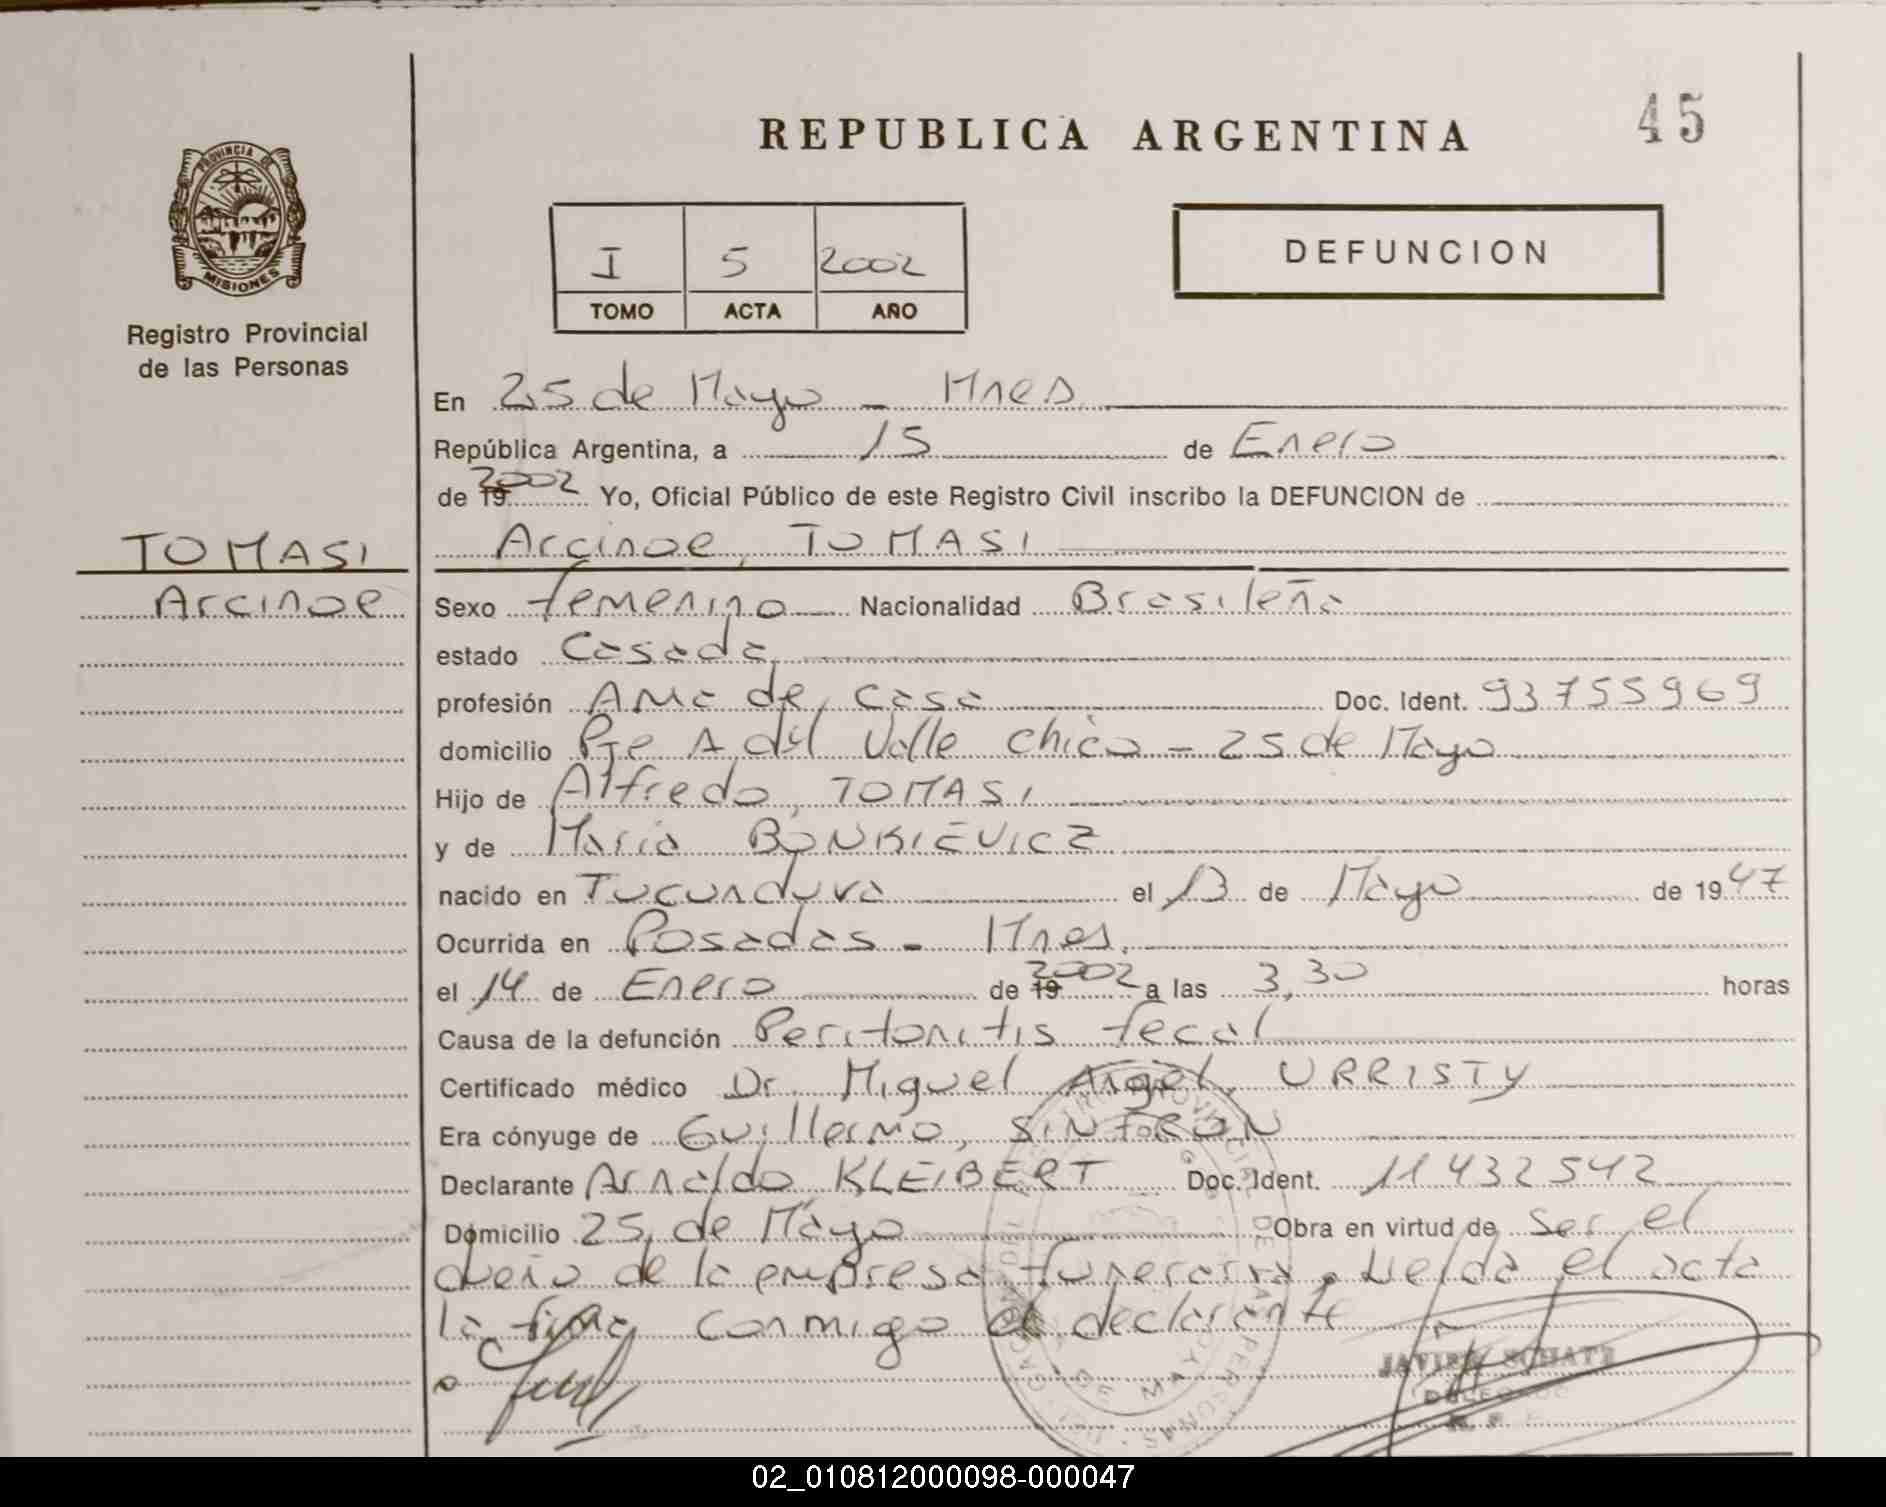 REPUBLICA ARGENTINA
45
PROVINCIA DE
MISIONES
Registro Provincial
de las Personas
I 5 2002
TOMO ACTA AÑO
DEFUNCION
En 25 de Mayo - Mnes
República Argentina, a 15 de Enero
de 19 2002 Yo, Oficial Público de este Registro Civil inscribo la DEFUNCION de
TOMASI
Arcinoe, TOMASI
Arcinoe
Sexo femenino Nacionalidad Brasileña
estado Casada
profesión Ama de casa Doc. Ident. 93755969
domicilio Pje A del Valle Chico - 25 de Mayo
Hijo de Alfredo, TOMASI
y de Maria BONKIEVICZ
nacido en Tucunduva el 13 de Mayo de 1947
Ocurrida en Posadas - Mnes.
el 14 de Enero de 19 2002 a las 3,30 horas
Causa de la defunción Peritonitis fecal
Certificado médico Dr. Miguel Angel, URRISTY
Era cónyuge de Guillermo, SINFRON
Declarante Arnaldo KLEIBERT Doc. Ident. 11432542
Domicilio 25 de Mayo Obra en virtud de ser el
dueño de la empresa funeraria. Leida el acta
la firma conmigo el declarante
JAVIER SCHATZ
02_010812000098-000047